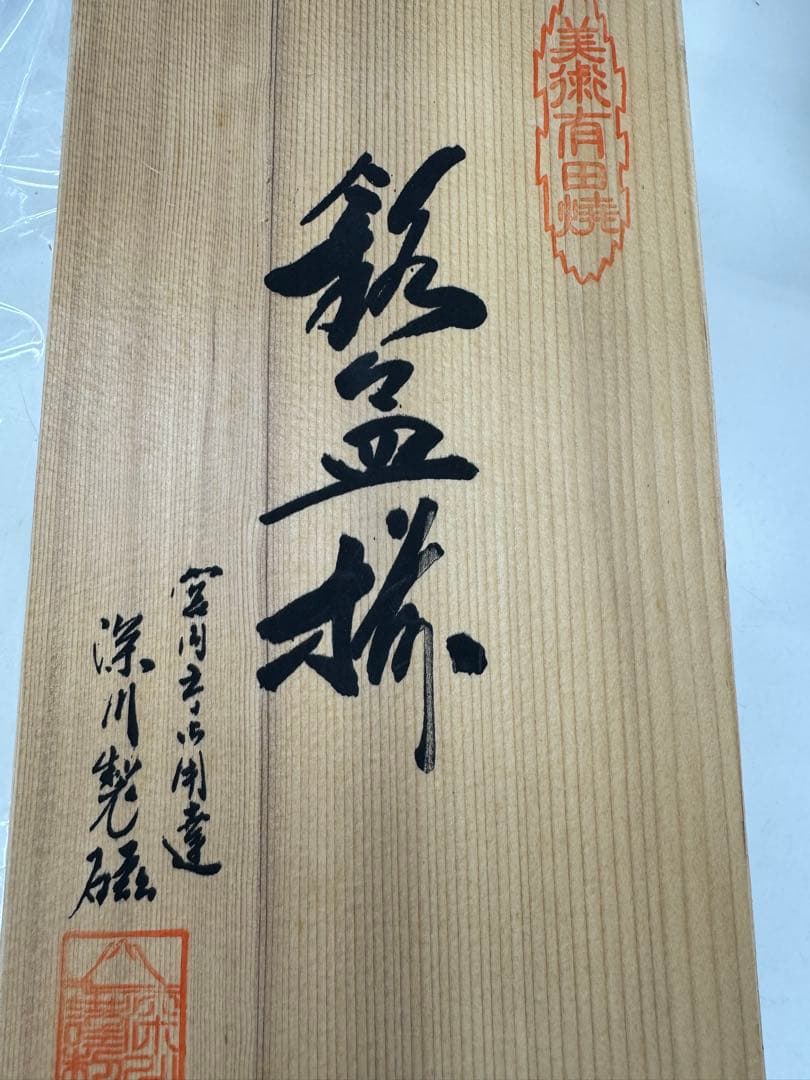 美術有田焼
銘々皿揃
宮内庁御用達
深川製磁